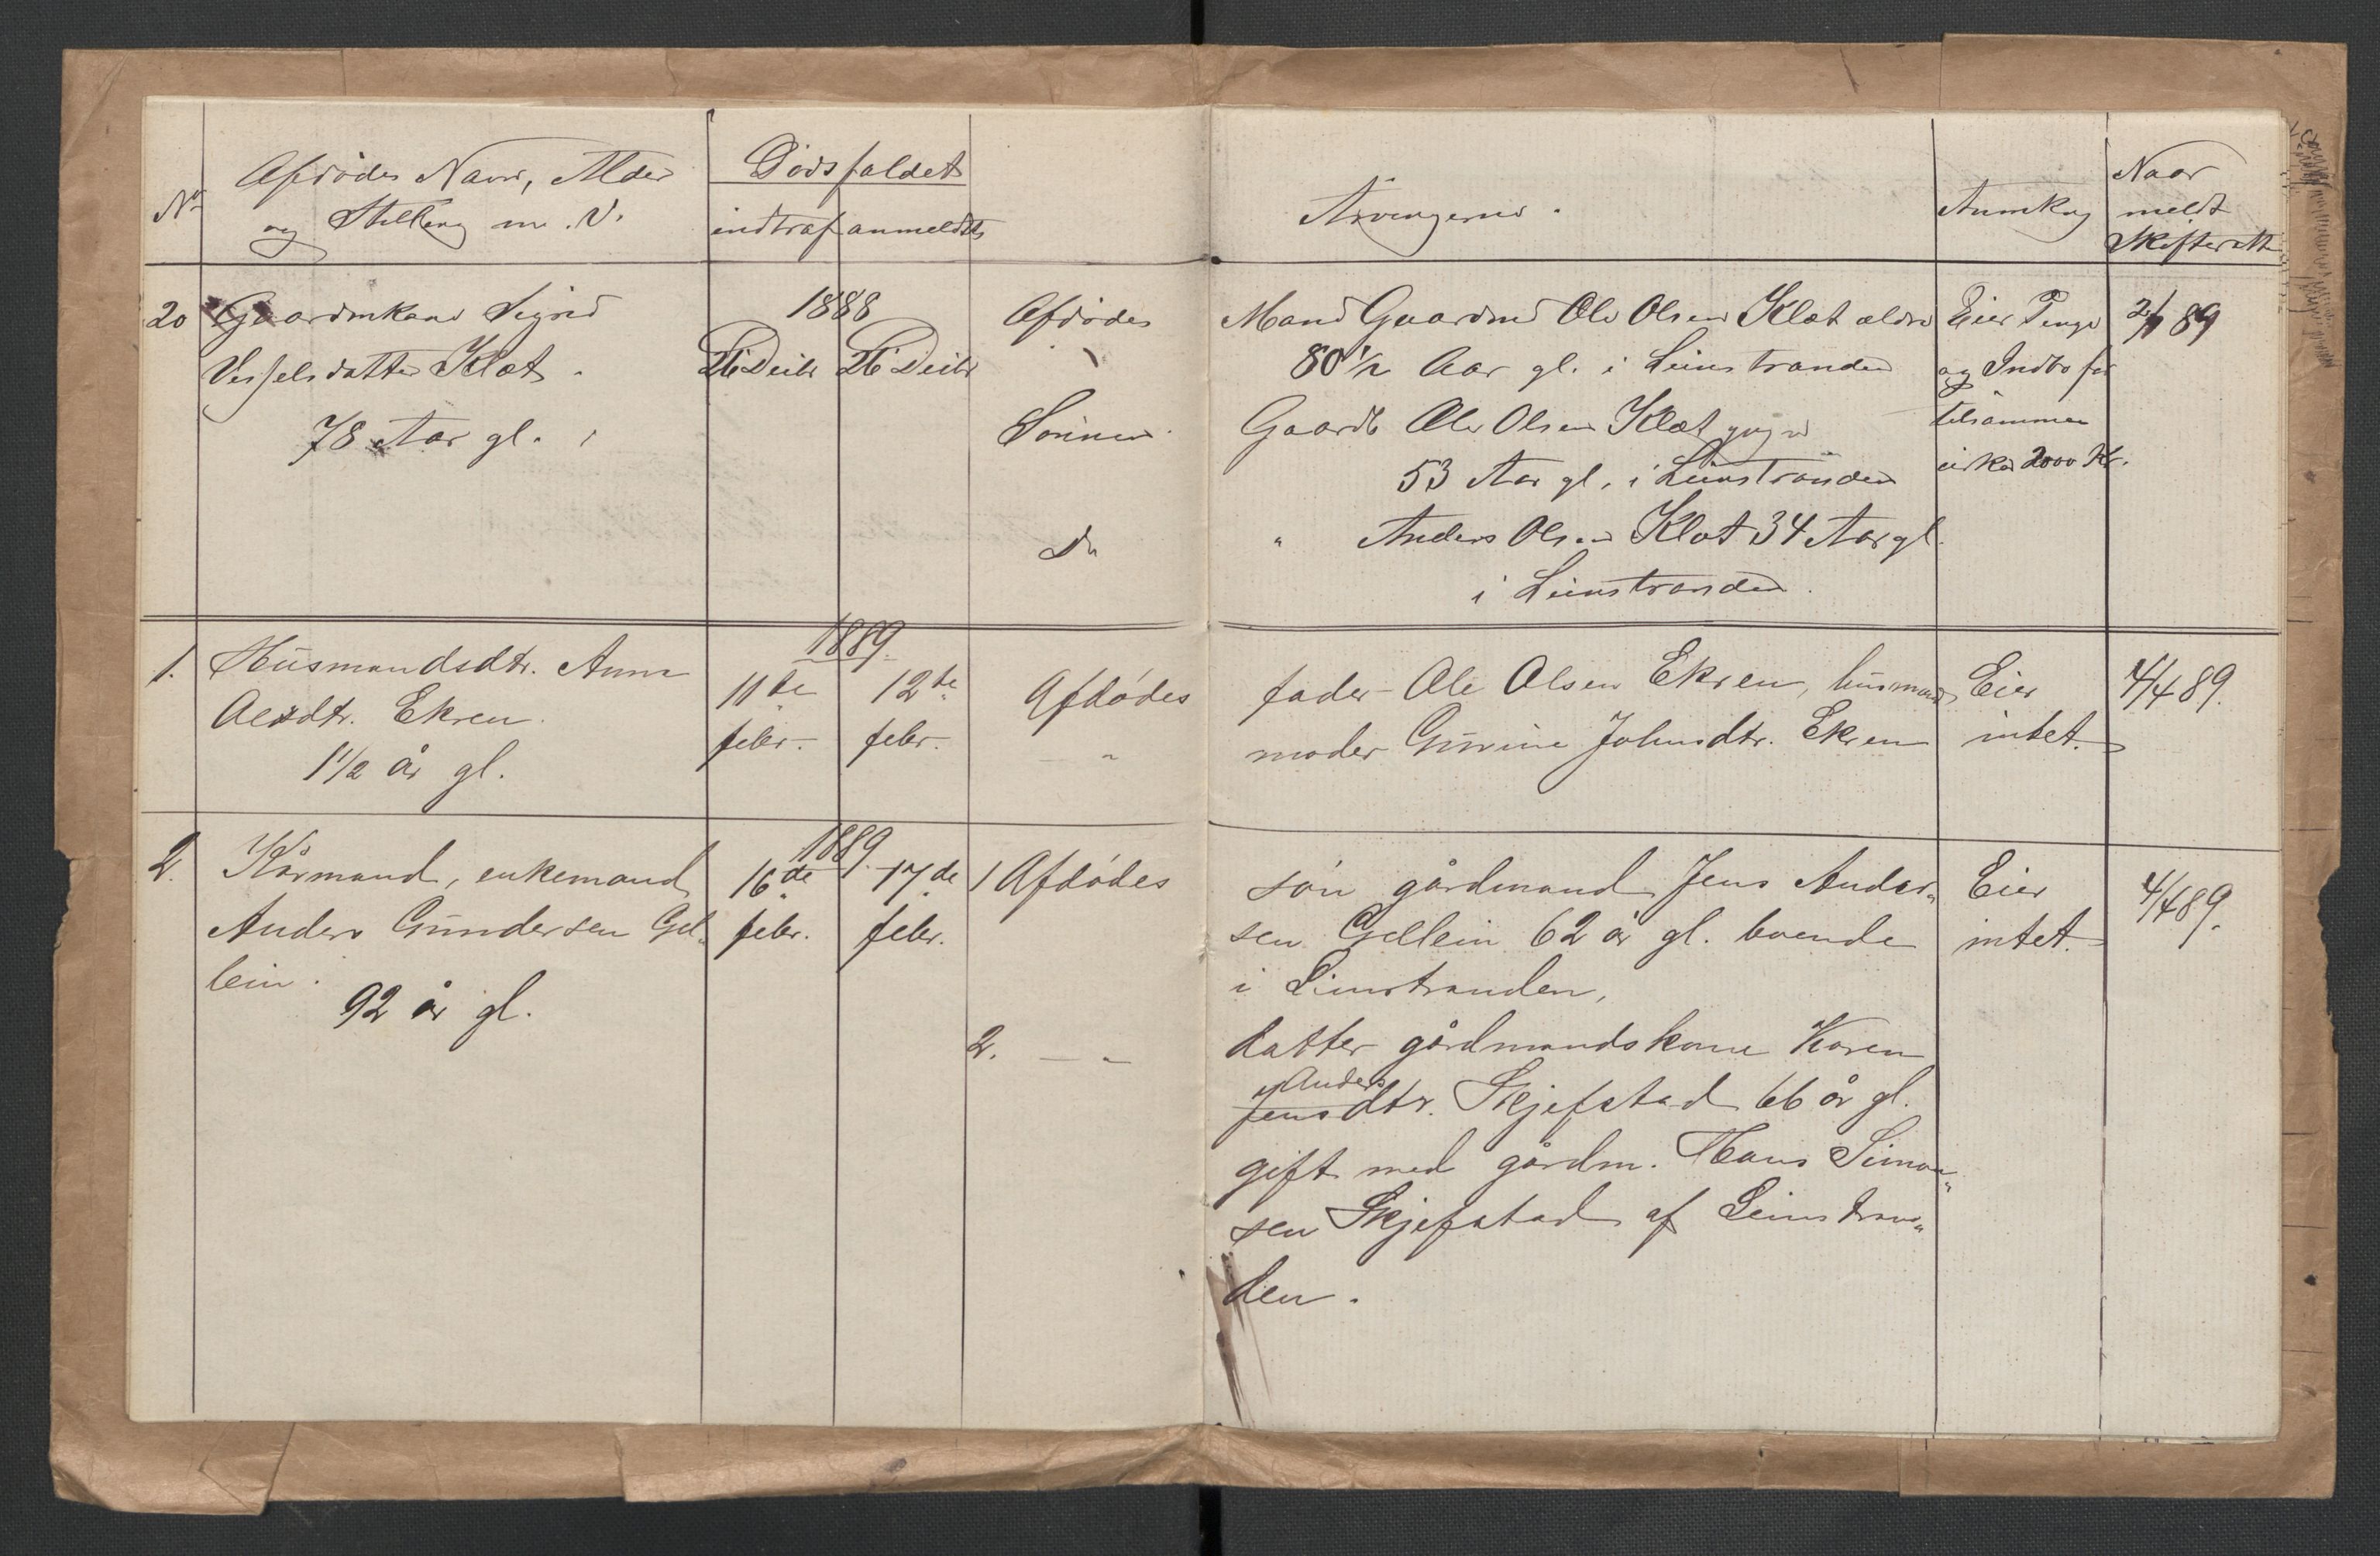 No
Afdødes Navn, Alder
og Stilling m. V.
Dødsfaldet
indtraf anmeldtes
Arvingerne.
Anmkng
Naar
meldt
Skifteretten
20 Gaardmkone Sigrid
Vesselsdatter Klæt.
78 Aar gl.
1888
26 Decbr 26 Decbr
Afdødes
"
Sønner
Do
Mand Gaardmd Ole Olsen Klæt ældre
80 1/2 Aar gl. i Leinstranden
Gaardb Ole Olsen Klæt yngre
53 Aar gl. i Leinstranden
" Anders Olsen Klæt 34 Aar gl.
i Leinstranden.
Eier Penge
og Indbo for
tilsammen
cirka 2000 Kr.
2/1 89
1. Husmandsdtr. Anne
Olesdtr. Ekren.
1 1/2 år gl.
1889.
11te 12te
febr. febr.
Afdødes
— "
fader Ole Olsen Ekren, husmand,
moder Gurine Johnsdtr. Ekren
Eier
intet.
4/4 89.
2. Kårmand, enkemand
Anders Gundersen Gel„
lein.
92 år gl.
1889.
16de 17de
febr. febr.
1 Afdødes
2. — "
søn gårdmand Jens Ander„
sen Gellein 62 år gl. boende
i Leinstranden,
datter gårdmandskone Karen
Anders
Jensdtr. Skjefstad 66 år gl.
gift med gårdm. Hans Simon„
sen Skjefstad af Leinstran„
den.
Eier
intet.
4/4 89.